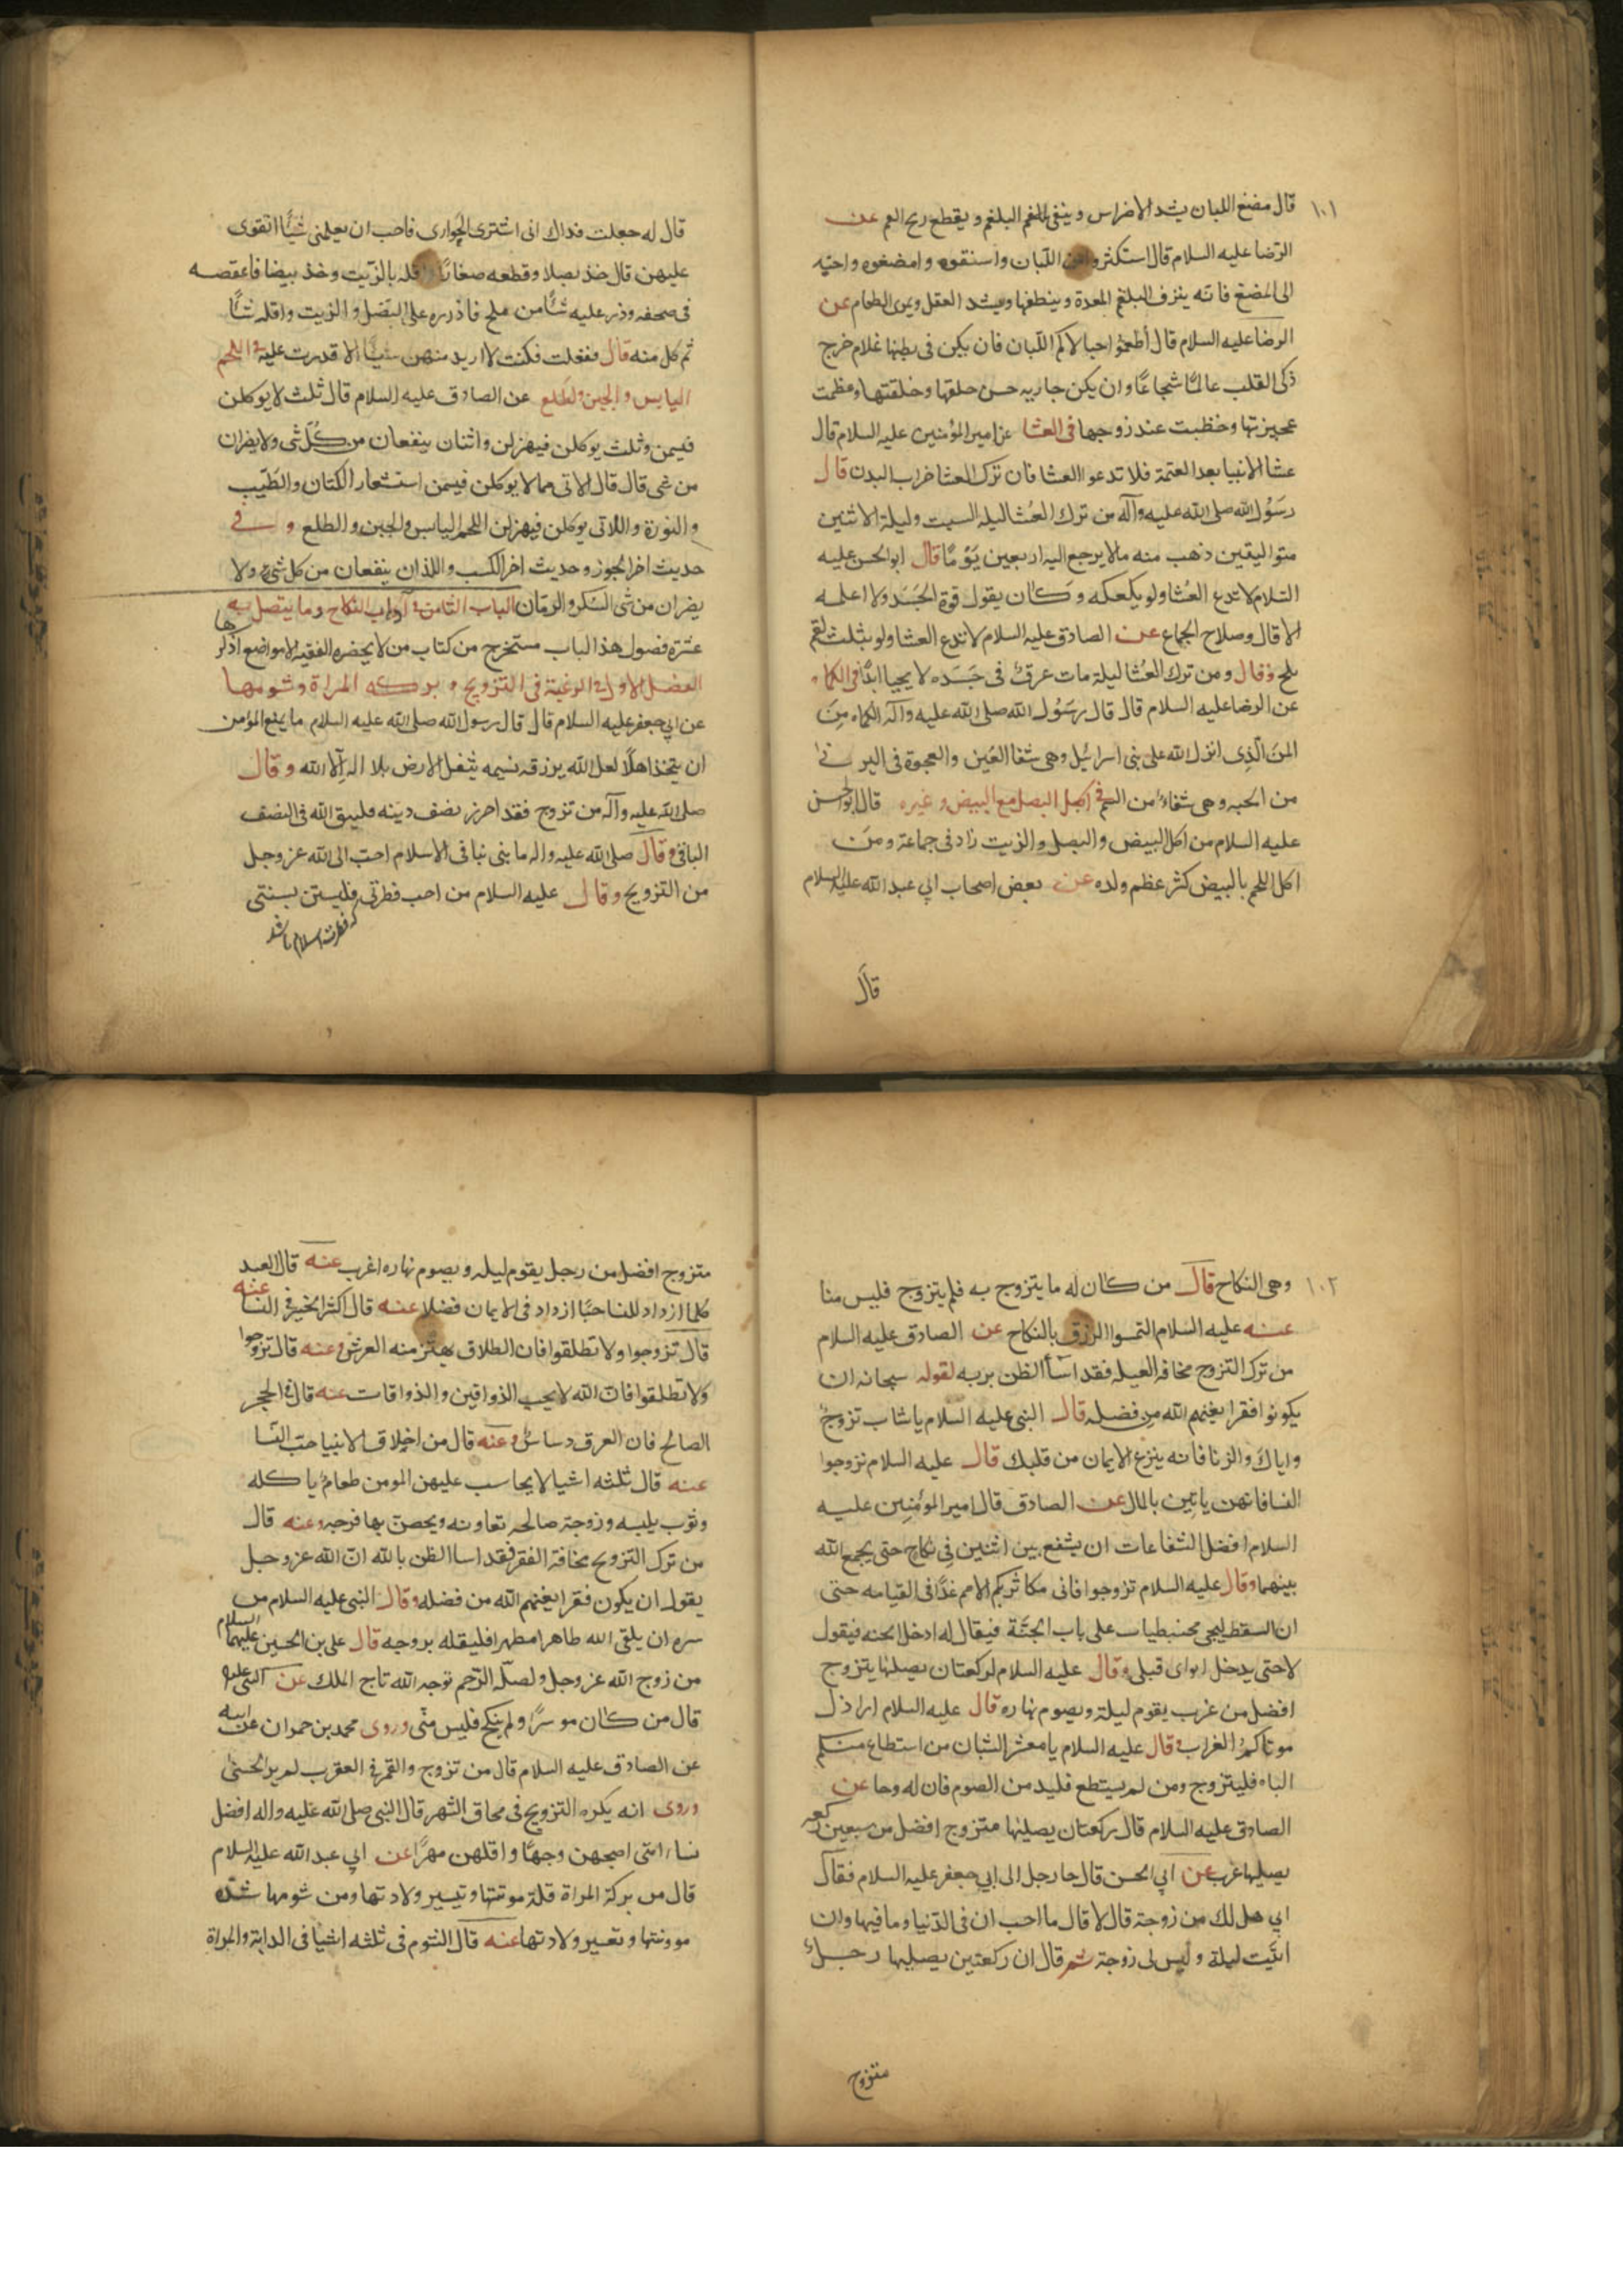 ١٠١
قال مضغ اللبان يشد الاضراس وينفى البلغم ويقطع ريح الفم عن
الرضا عليه السلام قال استكثروا من اللبان واستفوه وامضغوه واحبه
الى المضغ فانه ينزف البلغم المعدة وينظفها ويشد العقل ويمرى الطعام عن
الرضا عليه السلام قال اطعموا حبالاكم اللبان فان يكن فى بطنها غلام خرج
ذكى القلب عالما شجاعا وان يكن جاريه حسن خلقها وخلقتها وعظمت
عجيزتها وحظيت عند زوجها فى العشا عن امير المؤمنين عليه السلام قال
عشا الانبيا بعد العتمة فلا تدعوا العشا فان ترك العشا خراب البدن قال
رسول الله صلى الله عليه وآله من ترك العشا ليله السبت وليلة الاثنين
متواليتين ذهب منه مالا يرجع اليه اربعين يوما قال ابو الحسن عليه
السلام لا تدع العشا ولو بكعكه وكان يقول قوة الجسد ولا اعلمه
الا قال وصلاح الجماع عن الصادق عليه السلام لا تدع العشا ولو بثلث لقم
بملح وقال ومن ترك العشا ليلة مات عرق فى جسده لا يحيا ابدا فى الكماه
عن الرضا عليه السلام قال قال رسول الله صلى الله عليه وآله الكماه من
المن الذى انزل الله على بنى اسرائيل وهى شفا العين والعجوة فى البرنى
من الجنه وهى شفاء من السم فى اكل البصل مع البيض وغيره قال ابو الحسن
عليه السلام من اكل البيض والبصل والزيت زاد فى جماعه ومن
اكل اللحم بالبيض كثر عظم ولده عن بعض اصحاب ابي عبد الله عليه السلام
قال
قال له جعلت فداك انى اشترى الجوارى فاحب ان تعلمنى شيا اتقوى
عليهن قال خذ بصلا وقطعه صغارا واقله بالزيت وخذ بيضا فاعقصه
فى صحفه وذر عليه شيا من ملح فاذرره على البصل والزيت واقله شيا
ثم كل منه قال ففعلت فكنت لا اريد منهن شيا الا قدرت عليه فى اللحم
اليابس والجبن والطلع عن الصادق عليه السلام قال ثلث لا يوكلن
فيسمن وثلث يوكلن فيهزلن واثنان ينفعان من كل شى ولا يضران
من شى قال قال الاتى مما لا يوكلن فيسمن استشعار الكتان والطيب
والنورة واللاتى يوكلن فيهزلن اللحم اليابس والجبن والطلع وفى
حديث اخر الجوز وحديث اخر الكسب واللذان ينفعان من كل شى ولا
يضران من شى السكر والرمان الباب الثامن فى آداب النكاح وما يتصل به
عشرة فصول هذا الباب مستخرج من كتاب من لا يحضره الفقيه الا مواضع اذكرها
الفصل الاول فى الرغبة فى التزويج وبركه المراة وشومها
عن ابي جعفر عليه السلام قال قال رسول الله صلى الله عليه السلام ما يمنع المؤمن
ان يتخذ اهلا لعل الله يرزقه نسمه تثقل الارض بلا اله الا الله وقال
صلى الله عليه وآله من تزوج فقد احرز نصف دينه فليتق الله فى النصف
الباقى وقال صلى الله عليه واله ما بنى بنا فى الاسلام احب الى الله عز وجل
من التزويج وقال عليه السلام من احب فطرتى فليستن بسنتى
كه فطرت اسلام باشد
١٠٢
وهى النكاح قال من كان له ما يتزوج به فلم يتزوج فليس منا
عنه عليه السلام التمسوا الرزق بالنكاح عن الصادق عليه السلام
من ترك التزوج مخافه العيله فقد اسأ الظن بربه لقوله سبحانه ان
يكونوا فقرا يغنهم الله من فضله قال النبى عليه السلام يا شاب تزوج
واياك والزنا فانه ينزع الايمان من قلبك قال عليه السلام تزوجوا
النسا فانهن ياتين بالمال عن الصادق قال امير المؤمنين عليه
السلام افضل الشفاعات ان يشفع بين اثنين فى نكاح حتى يجمع الله
بينهما وقال عليه السلام تزوجوا فانى مكاثر بكم الامم غدا فى القيامه حتى
ان السقط ليجى محبنطيا على باب الجنة فيقال له ادخل الجنه فيقول
لا حتى يدخل ابواى قبلى وقال عليه السلام لركعتان يصليها يتزوج
افضل من عزب يقوم ليلة ويصوم نهاره قال عليه السلام اراذل
موتاكم العزاب وقال عليه السلام يا معشر الشبان من استطاع منكم
الباه فليتزوج ومن لم يستطع فليدمن الصوم فان له وجا عن
الصادق عليه السلام قال ركعتان يصليها متزوج افضل من سبعين ركعه
يصليها عزب عن ابي الحسن قال جا رجل الى ابي جعفر عليه السلام فقال
ابي هل لك من زوجة قال لا قال ما احب ان فى الدنيا وما فيها وان
ابيت ليلة وليس لى زوجة ثم قال ان ركعتين يصليها رجل
متزوج
متزوج افضل من رجل يقوم ليله ويصوم نهاره اعزب عنه قال العبد
كلما ازداد للنسا حبا ازداد فى الايمان فضلا عنه قال اكثر الخير فى النسا عنه
قال تزوجوا ولا تطلقوا فان الطلاق يهتز منه العرش وعنه قال تزوجوا
ولا تطلقوا فان الله لا يحب الذواقين والذواقات عنه قال فى الحجر
الصالح فان العرق دساس وعنه قال من اخلاق الانبيا حب النسا
عنه قال ثلثه اشيا لا يحاسب عليهن المومن طعام ياكله
وثوب يلبسه وزوجة صالحه تعاونه ويحصن بها فرجه وعنه قال
من ترك التزويج مخافة الفقر فقد اسا الظن بالله ان الله عز وجل
يقول ان يكون فقرا يغنهم الله من فضله وقال النبى عليه السلام من
سره ان يلقى الله طاهرا مطهرا فليقله بزوجه قال على بن الحسين عليهما السلام
من زوج الله عز وجل ولصلة الرحم توجه الله تاج الملك عن النبى عليه
قال من كان موسرا ولم ينكح فليس منى وروى محمد بن حمران عن ابيه
عن الصادق عليه السلام قال من تزوج والقمر فى العقرب لم ير الحسنى
وروى انه يكره التزويج فى محاق الشهر قال النبى صلى الله عليه واله افضل
نساء امتى اصبحهن وجها واقلهن مهرا عن ابي عبد الله عليه السلام
قال من بركة المراة قلة مونتها وتيسير ولادتها ومن شومها شدة
موونتها وتعسير ولادتها عنه قال الشوم فى ثلثه اشيا فى الدابة والمراة